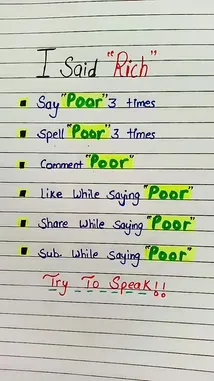 I Said "Rich"
Say "Poor" 3 times
Spell "Poor" 3 times
Comment "Poor"
Like While Saying "Poor"
Share While Saying "Poor"
Sub. While Saying "Poor"
Try To Speak!!